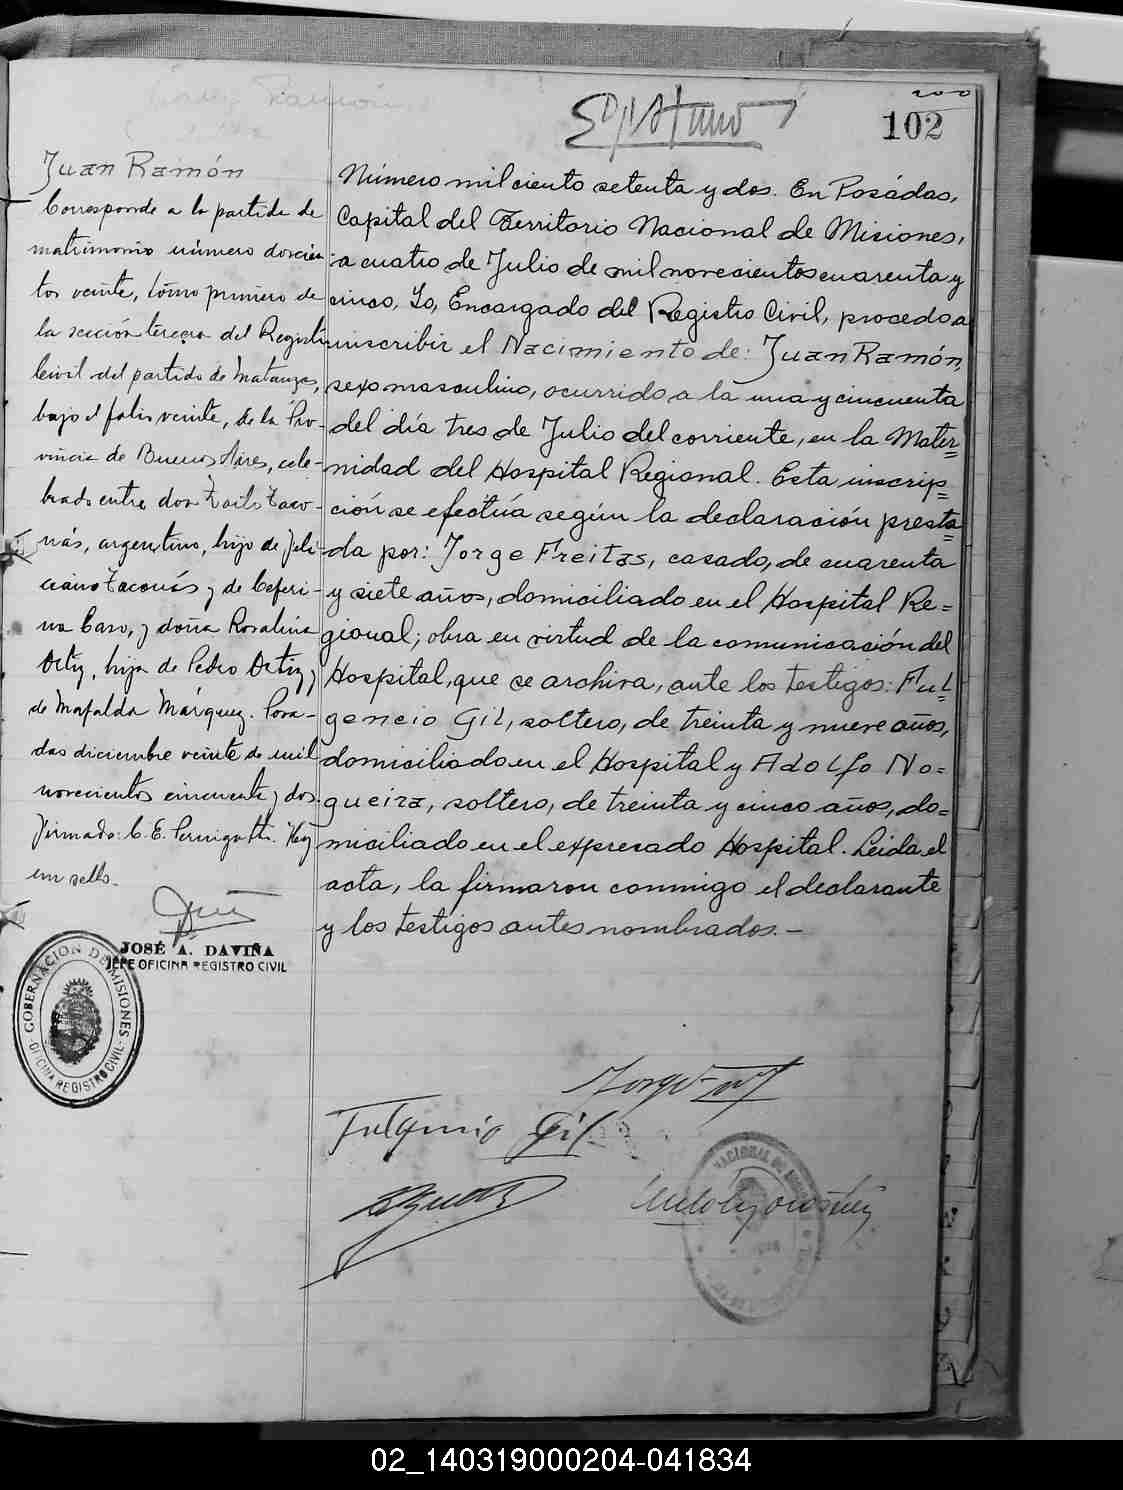 102
Juan Ramón
Corresponde a la partida de
matrimonio número doscien
tos veinte, tomo primero de
la sección tercera del Registro
Civil del partido de Matanza,
bajo el folio veinte, de la Pro-
vincia de Buenos Aires, cele-
brado entre don
nás, argentino, hijo de Feli-
ciano y de Ceferi-
na Caso, y doña Rosalina
Ortiz, hija de Pedro Ortiz y
de Mafalda Márquez. Posa-
das diciembre veinte de mil
novecientos cincuenta y dos.
Firmado: C. E. Hay
un sello.
JOSÉ A. DAVIÑA
JEFE OFICINA REGISTRO CIVIL
GOBERNACION DE MISIONES
OFICINA REGISTRO CIVIL
Número mil ciento setenta y dos. En Posádas,
Capital del Territorio Nacional de Misiones,
a cuatro de Julio de mil novecientos cuarenta y
cinco, Yo, Encargado del Registro Civil, procedo a
inscribir el Nacimiento de: Juan Ramón,
sexo masculino, ocurrido a la una y cincuenta
del día tres de Julio del corriente, en la Mater=
nidad del Hospital Regional. Esta inscrip=
ción se efectúa según la declaración presta=
da por: Jorge Freitas, casado, de cuarenta
y siete años, domiciliado en el Hospital Re=
gional; obra en virtud de la comunicación del
Hospital, que se archiva, ante los testigos: Ful
gencio Gil, soltero, de treinta y nueve años,
domiciliado en el Hospital y Adolfo No=
gueira, soltero, de treinta y cinco años, do=
miciliado en el expresado Hospital. Leida el
acta, la firmaron conmigo el declarante
y los testigos antes nombrados.-
Fulgencio Gil
NACIONAL DE
02_140319000204-041834